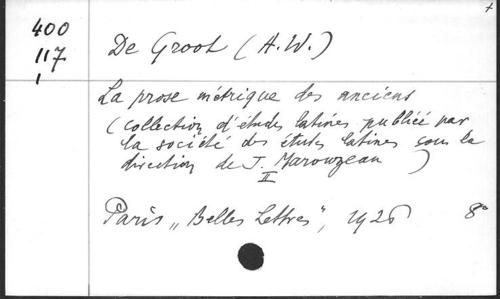 400
117
1
De Groot (A.W.)
La prose métrique des anciens
(collection d'études latines publiée par
la société des études latines sous la
direction de J. Marouzeau )
II
Paris „Belles Lettres", 1926 8°